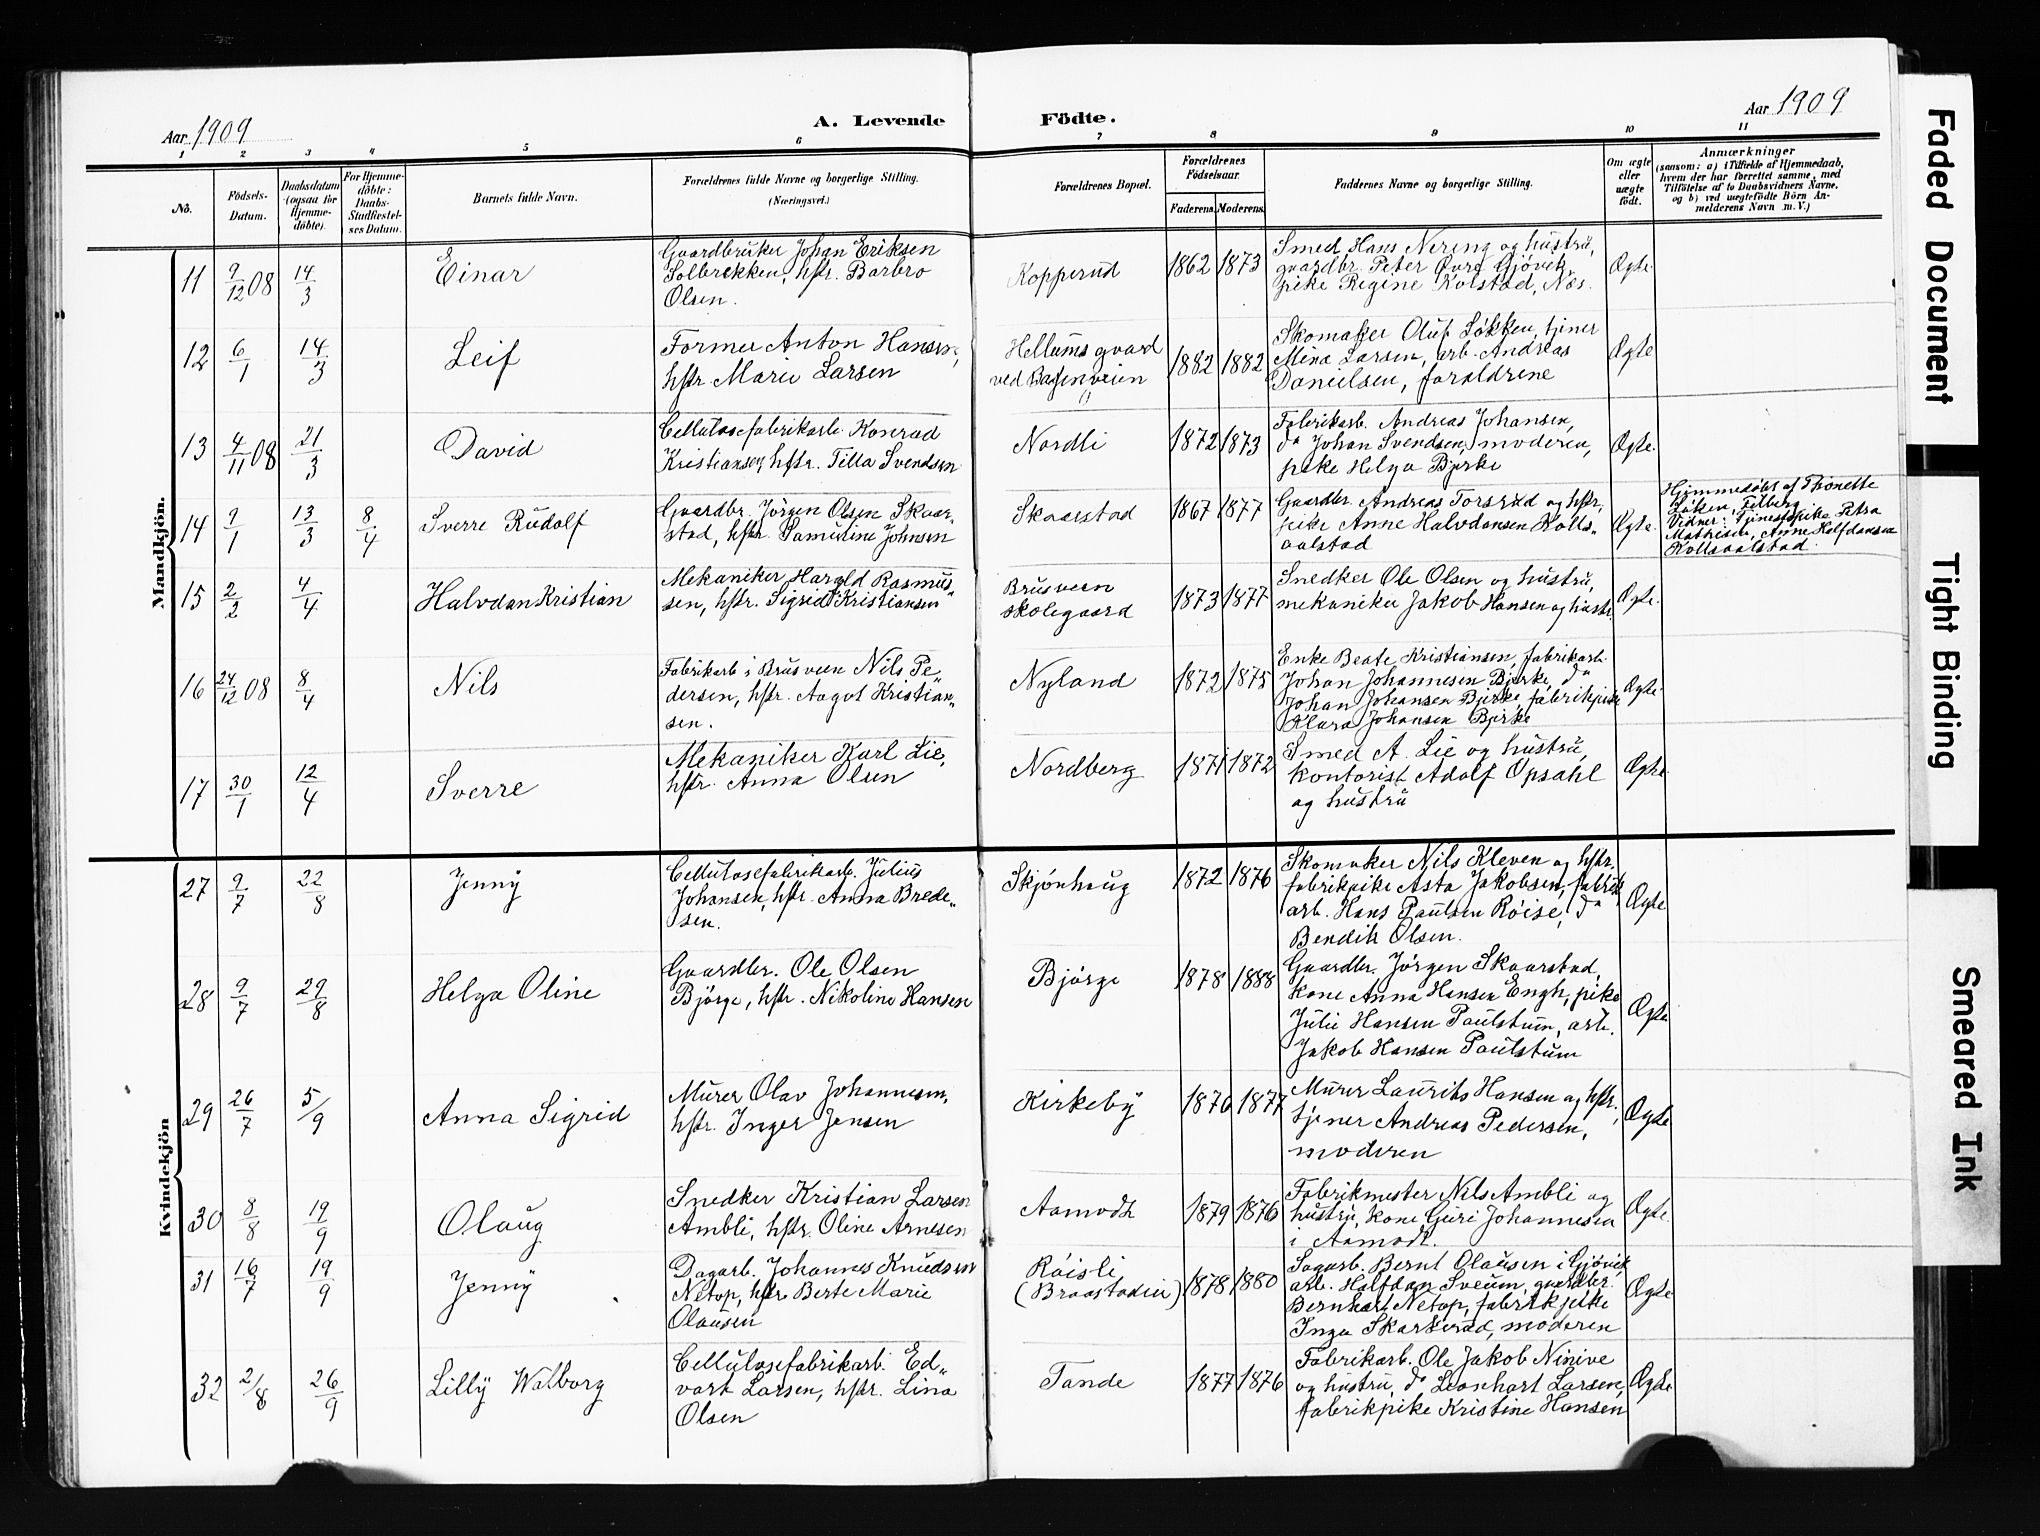 Aar 1909
A. Levende
Födte.
Aar 1909
1 2 3 4 5 6 7 8 9 10 11
No.
Födsels-
Datum.
Daabsdatum
(ogsaa for
Hjemme-
døbte).
For Hjemme-
døbte:
Daabs-
Stadfæstel-
ses Datum.
Barnets fulde Navn.
Forældrenes fulde Navne og borgerlige Stilling.
(Næringsvei.)
Forældrenes Bopæl.
Forældrenes
Födselsaar.
Faderens. Moderens.
Faddernes Navne og borgerlige Stilling.
Om ægte
eller
uægte
født.
Anmærkninger
(saasom: a) i Tilfælde af Hjemmedaab,
hvem der har forrettet samme, med
Tilföielse af to Daabsvidners Navne,
og b) ved uægtefödte Börn An-
melderens Navn m. V.)
Mandkjön.
11 9/12 08 14/3 Einar
Gaardbruker Johan Eriksen
Solbrekken, hstr. Barbro
Olsen.
Kopperud 1862 1873
Smed Hans Nering og hustru,
gaardbr. Peter Øvre Gjövik,
pike Regine Kolstad, Næs.
Ægte.
12 6/1 14/3 Leif
Former Anton Hansen,
hstr. Marie Larsen
Hellums gaard
ved Bassenveien
1882 1882
Skomaker Oluf Løkken, tjener
Mina Larsen, arb. Andreas
Danielsen, forældrene
Ægte
13 4/11 08 21/3 David
Cellulosefabrikarb. Konrad
Kristiansen, hstr. Tilla Svendsen
Nordli 1872 1873
Fabrikarb. Andreas Johansen,
do Johan Svendsen, moderen,
pike Helga Bjerke
Ægte.
14 9/1 13/3 8/4 Sverre Rudolf
Gaardbr. Jörgen Olsen Skaar-
stad, hstr. Samueline Johnsen
Skaarstad 1867 1877
Gaardbr. Andreas Torsrud og hstr,
pike Anne Halvdansen Kolls-
aalstad
Ægte.
Hjemmedøbt af Thonette
Løken, Filberg
Vidner: Tjenestepike Petra
Mathisen, Anne Halfdansen
Kollsaalstad.
15 2/2 4/4 Halvdan Kristian
Mekaniker Harald Rasmus-
sen, hstr. Sigrid Kristiansen
Brusveen
skolegaard
1873 1877
Snedker Ole Olsen og hustru,
mekaniker Jakob Hansen og hustr.
Ægte.
16 24/12 08 8/4 Nils
Fabrikarb. i Brusveen Nils Pe-
dersen, hstr. Aagot Kristian-
sen.
Nyland 1872 1875
Enke Beate Kristiansen, fabrikarb.
Johan Johannesen Bjerke, do
Johan Johansen Bjerke, fabrikpike
Klara Johansen Bjerke
Ægte.
17 30/1 12/4 Sverre
Mekaniker Karl Lie,
hstr. Anna Olsen
Nordberg 1871 1872
Smed A. Lie og hustru,
kontorist Adolf Opsahl
og hustru
Ægte.
Kvindekjön
27 9/7 22/8 Jenny
Cellulosefabrikarb. Julius
Johansen, hstr. Anna Brede-
sen.
Skjønhaug 1872 1876
Skomaker Nils Kleven og hstr.
fabrikpike Asta Jakobsen, fabrik
arb. Hans Paulsen Røise, do
Bendik Olsen.
Ægte
28 9/7 29/8 Helga Oline
Gaardbr. Ole Olsen
Bjørge, hstr. Nikoline Hansen
Bjørge 1878 1888
Gaardbr. Jørgen Skaarstad,
kone Anna Hansen Engh, pike
Julie Hansen Paulstum, arb.
Jakob Hansen Paulstum
Ægte
29 26/7 5/9 Anna Sigrid
Murer Olav Johannesen,
hstr. Inger Jensen
Kirkeby 1876 1877
Murer Laurits Hansen og hstr.,
tjener Andreas Pedersen,
moderen
Ægte
30 8/8 19/9 Olaug
Snedker Kristian Larsen
Ambli, hstr. Oline Arnesen
Aamodt 1879 1876
Fabrikmester Nils Ambli og
hustru, kone Guri Johannesen
i Aamodt.
Ægte.
31 16/7 19/9 Jenny
Dagarb. Johannes Knudsen
Netop, hstr Berte Marie
Olausen
Røisli
(Braastadlia)
1878 1880
Sagarb. Bernt Olausen i Gjøvik,
arb. Halfdan Sveum, gaardbr.
Bernhart Netop, fabrikpike
Inga Skarserud, moderen
Ægte
32 2/8 26/9 Lilly Walborg
Cellulosefabrikarb. Ed-
vart Larsen, hstr. Lina
Olsen
Tande 1877 1876
Fabrikarb. Ole Jakob Ninive
og hustru, do Leonhart Larsen,
fabrikpike Kristine Hansen
Ægte
Faded Document
Tight Binding
Smeared Ink